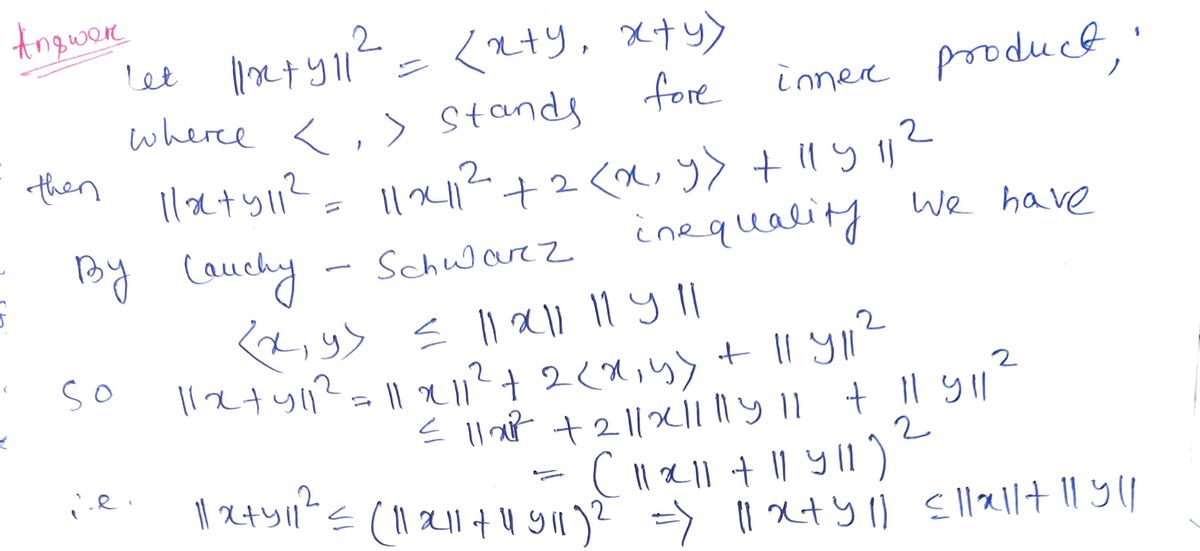 Answere
Let ||x+y||² = <x+y, x+y>
wherce < , > stands fore inner product,
then ||x+y||² = ||x||² + 2<x, y> + ||y||²
By Cauchy - Schwarz inequality we have
<x, y> ≤ ||x|| ||y||
So ||x+y||² = ||x||² + 2<x,y> + ||y||²
≤ ||x||² + 2||x|| ||y|| + ||y||²
= (||x|| + ||y||)²
i.e. ||x+y||² ≤ (||x|| + ||y||)² => ||x+y|| ≤ ||x|| + ||y||